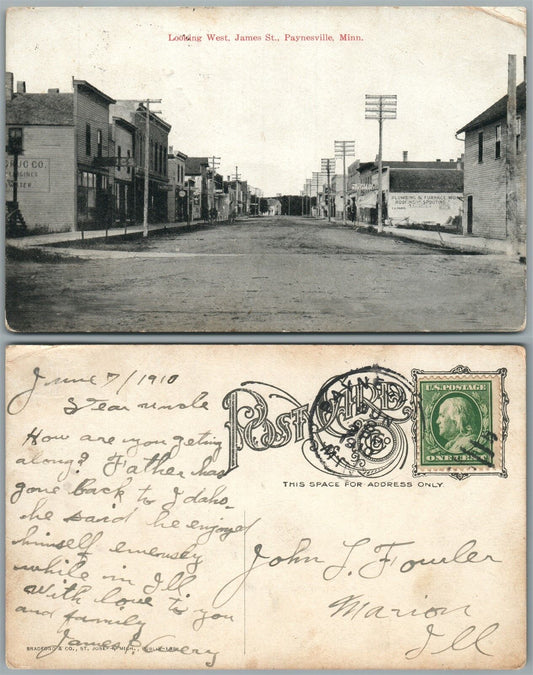 Looking West, James St., Paynesville, Minn.
DRUG CO.
PLUMBING & FURNACE WORK
ROOFING SPOUTING
June 7/1910
Dear uncle
How are you geting
along? Father has
gone back to Idaho.
he said he engoyed
himself emensely
while in Ill
With love to you
and family
James
BRADFORD & CO., ST. JOSEPH, MICH.,
POST CARD
THIS SPACE FOR ADDRESS ONLY.
PAYNESVILLE
JUN
1910
U.S. POSTAGE
ONE CENT
John L. Fowler
Marion
Ill